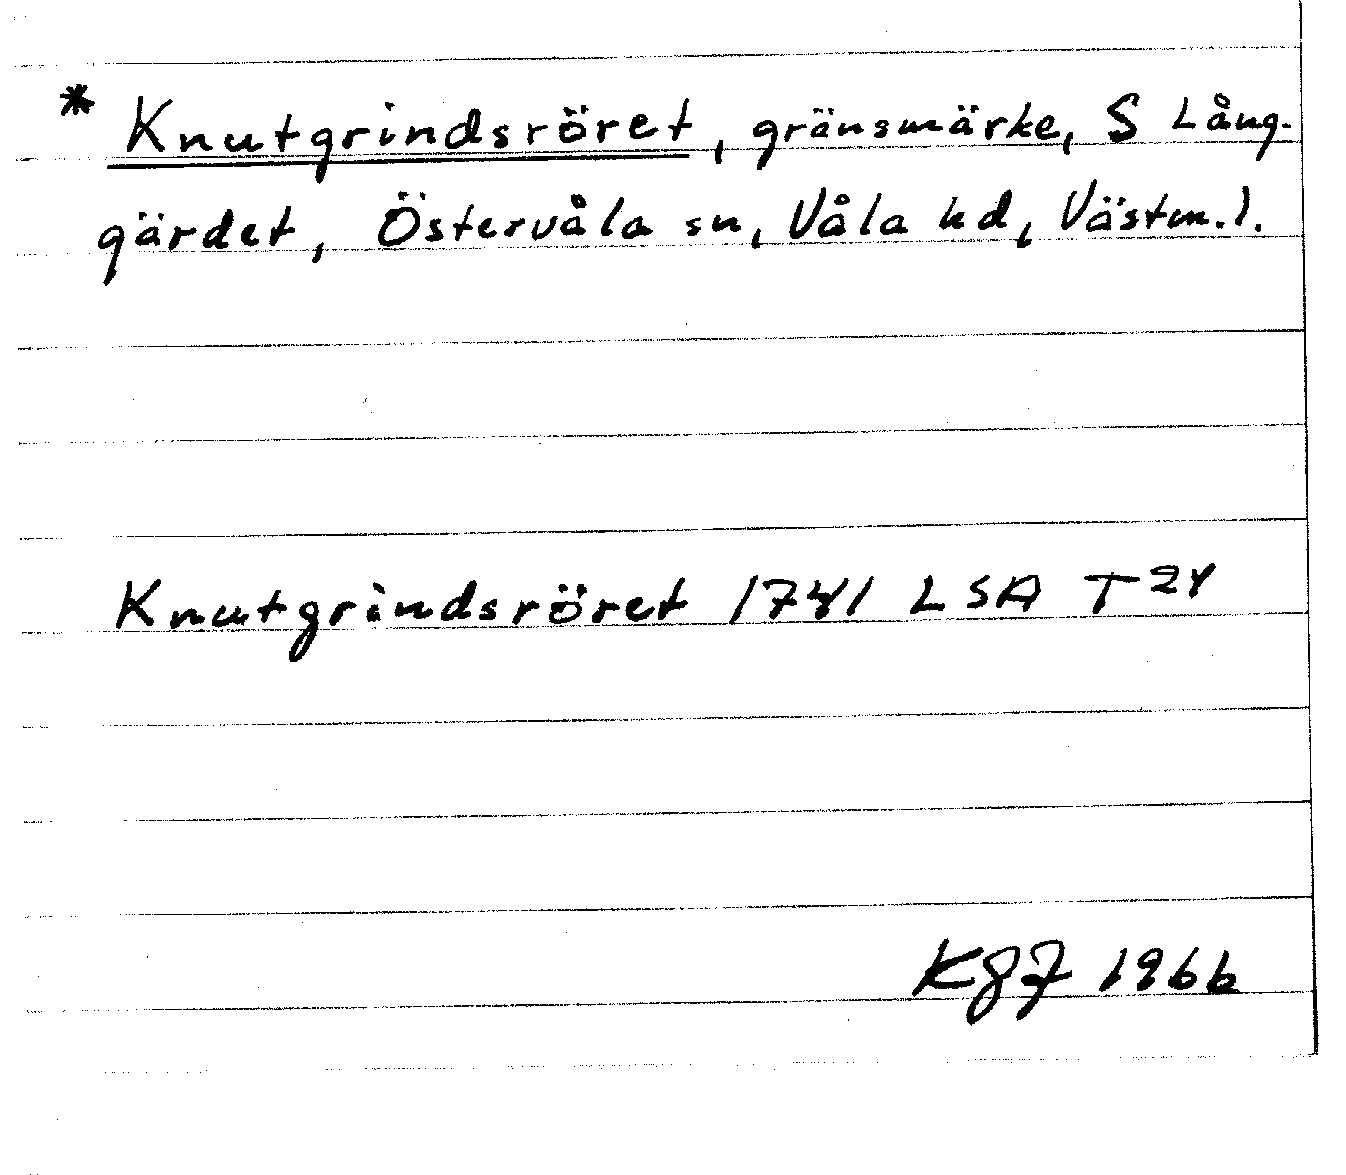 * Knutgrindsröret, gränsmärke, S Lång-
gärdet, Östervåla sn, Våla hd, Västm. l.
Knutgrindsröret 1741 LSA T 24
1966